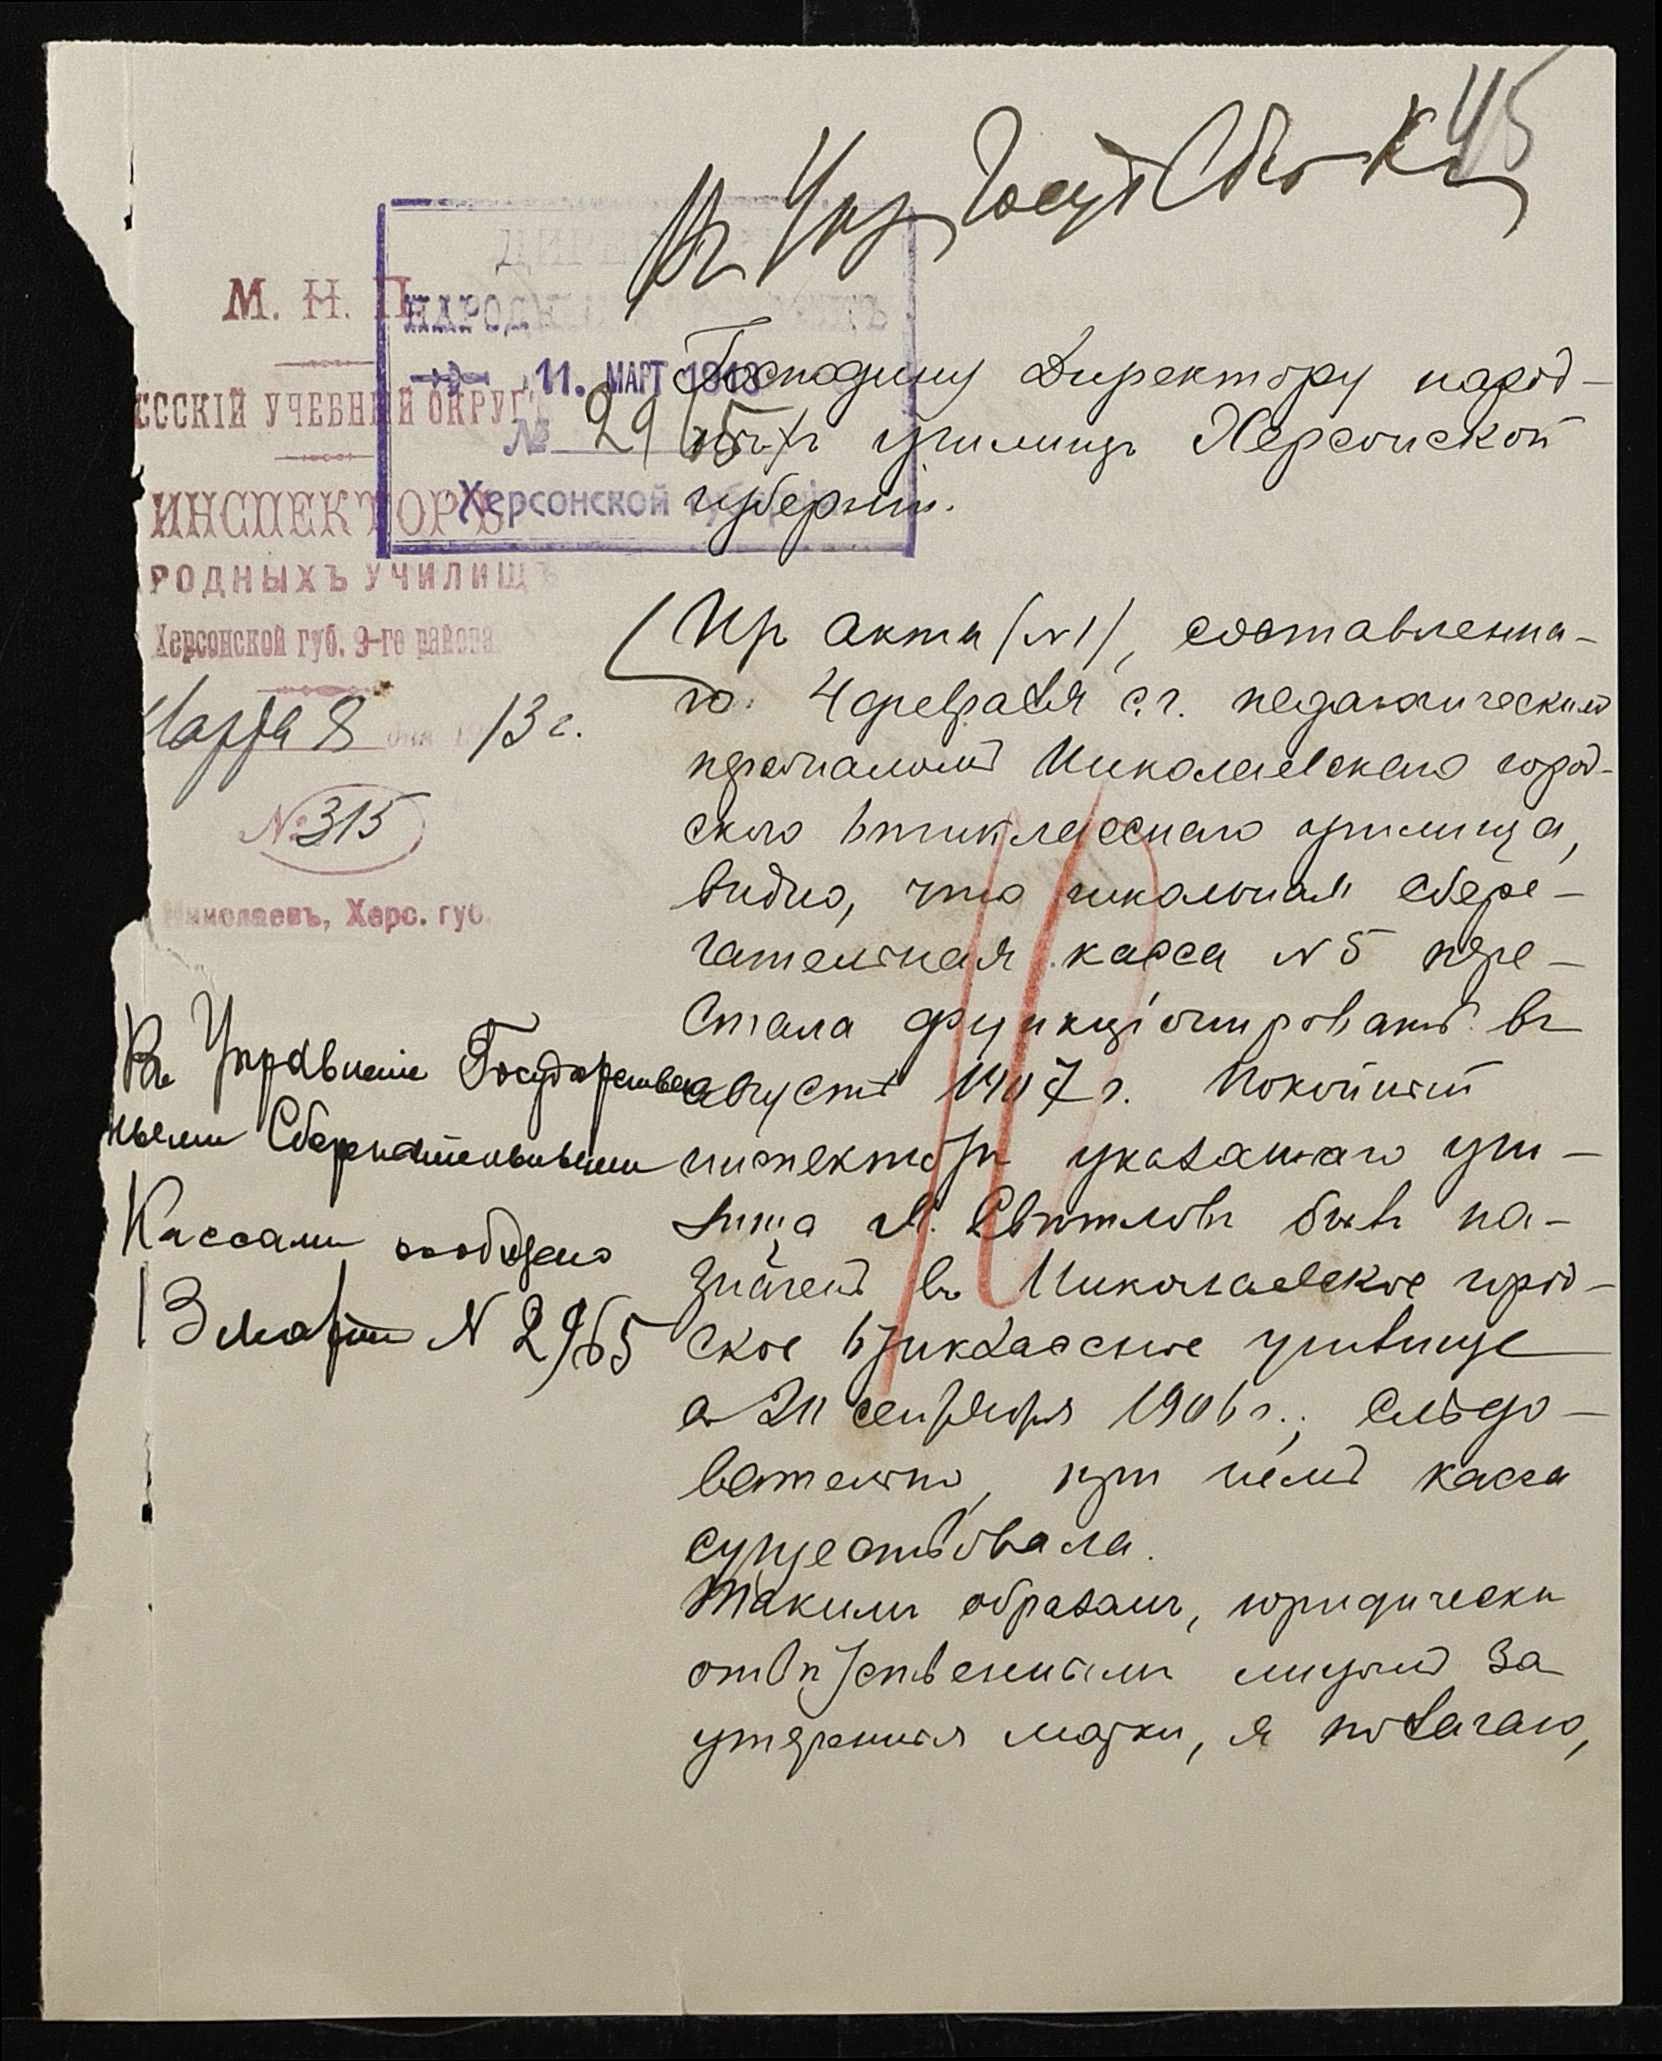 45
Въ Упр Госуд Сбер Кас
М. Н. П.
ССКІЙ УЧЕБНЫЙ ОКРУГЪ
ИНСПЕКТОРЪ
РОДНЫХЪ УЧИЛИЩЪ
Херсонской губ. 9-го района
Марта 8 дня 1913 г.
№ 315
Николаевъ, Херс. губ.
ДИРЕК
НАРОДН
11. МАРТ 1913
№ 2965
Херсонской губерніи
Господину Директору народ-
ныхъ училищъ Херсонской
губерніи.
Изъ акта (№1), составленна-
го 4 февраля с.г. педагогическимъ
персоналомъ Николаевскаго город-
ского 6тиклассного училища,
видно, что школьная сбере-
гательная касса № 5 пере-
стала функціонировать въ
августѣ 1907 г. Покойный
инспекторъ указаннаго учи-
лища Свѣтловъ былъ на-
значенъ въ Николаевское город-
ское 6тиклассное училище
съ 20 сентября 1906 г.; слѣдо-
вательно, при немъ касса
существовала.
Такимъ образомъ, юридически
отвѣтственнымъ лицомъ за
утерянныя марки, я полагаю,
Въ Управленіе Государствен
ными Сберегательными
Кассами сообщено
13 марта № 2965